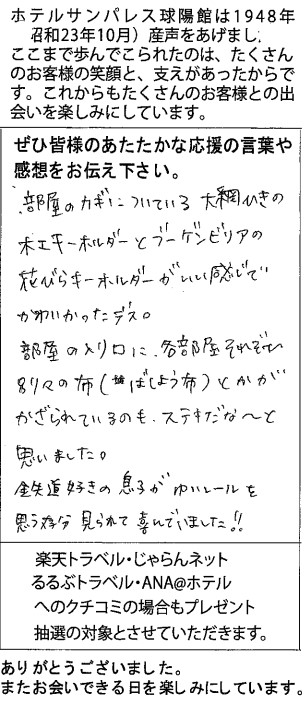 ホテルサンパレス球陽館は1948年
昭和23年10月）産声をあげまし.
ここまで歩んでこられたのは、たくさん
のお客様の笑顔と、支えがあったからで
す。これからもたくさんのお客様との出
会いを楽しみにしています。
ぜひ皆様のあたたかな応援の言葉や
感想をお伝え下さい。
部屋のカギについている 大綱ひきの
木工キーホルダーとブーゲンビリアの
花びらキーホルダーがいい感じで
かわいかったデス。
部屋の入り口に、各部屋それぞれ
別々の布（ばしょう布）とかが
かざられているのも、ステキだな〜と
思いました。
鉄道好きの息子がゆいレールを
思う存分 見られて 喜んでいました!!
楽天トラベル・じゃらんネット
るるぶトラベル・ANA@ホテル
へのクチコミの場合もプレゼント
抽選の対象とさせていただきます。
ありがとうございました。
またお会いできる日を楽しみにしています。